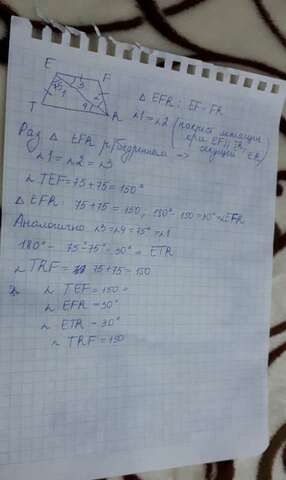 E
F
T
R
△ EFR: EF = FR
∠1 = ∠2 (накрест лежащие
при EF || TR
секущей ER)
Раз △ EFR р/бедренный =>
∠1 = ∠2 = ∠3
∠TEF = 75+75 = 150°
△ EFR 75+75 = 150, 180°-150 = 30° = ∠EFR
Аналогично ∠3 = ∠4 = 75° = ∠1
180° - 75° - 75° = 30° = ETR
∠TRF = 75+75 = 150
∠ TEF = 150°
∠ EFR = 30°
∠ ETR = 30°
∠ TRF = 150